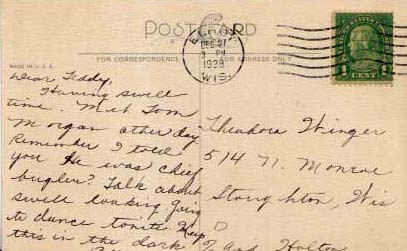 POST CARD
ELROY
DEC 27
3 PM
1928
WIS.
1 CENT 1
MADE IN U.S.A.
FOR CORRESPONDENCE
FOR ADDRESS ONLY
Dear Teddy,
Having swell
time. Met Tom
Morgan other day
Remember I told
you He was chief
bugler? Talk about
swell looking. Going
to dance tonite. Keep
this in the dark
Theodora Winger
514 N. Monroe
Stoughton, Wis